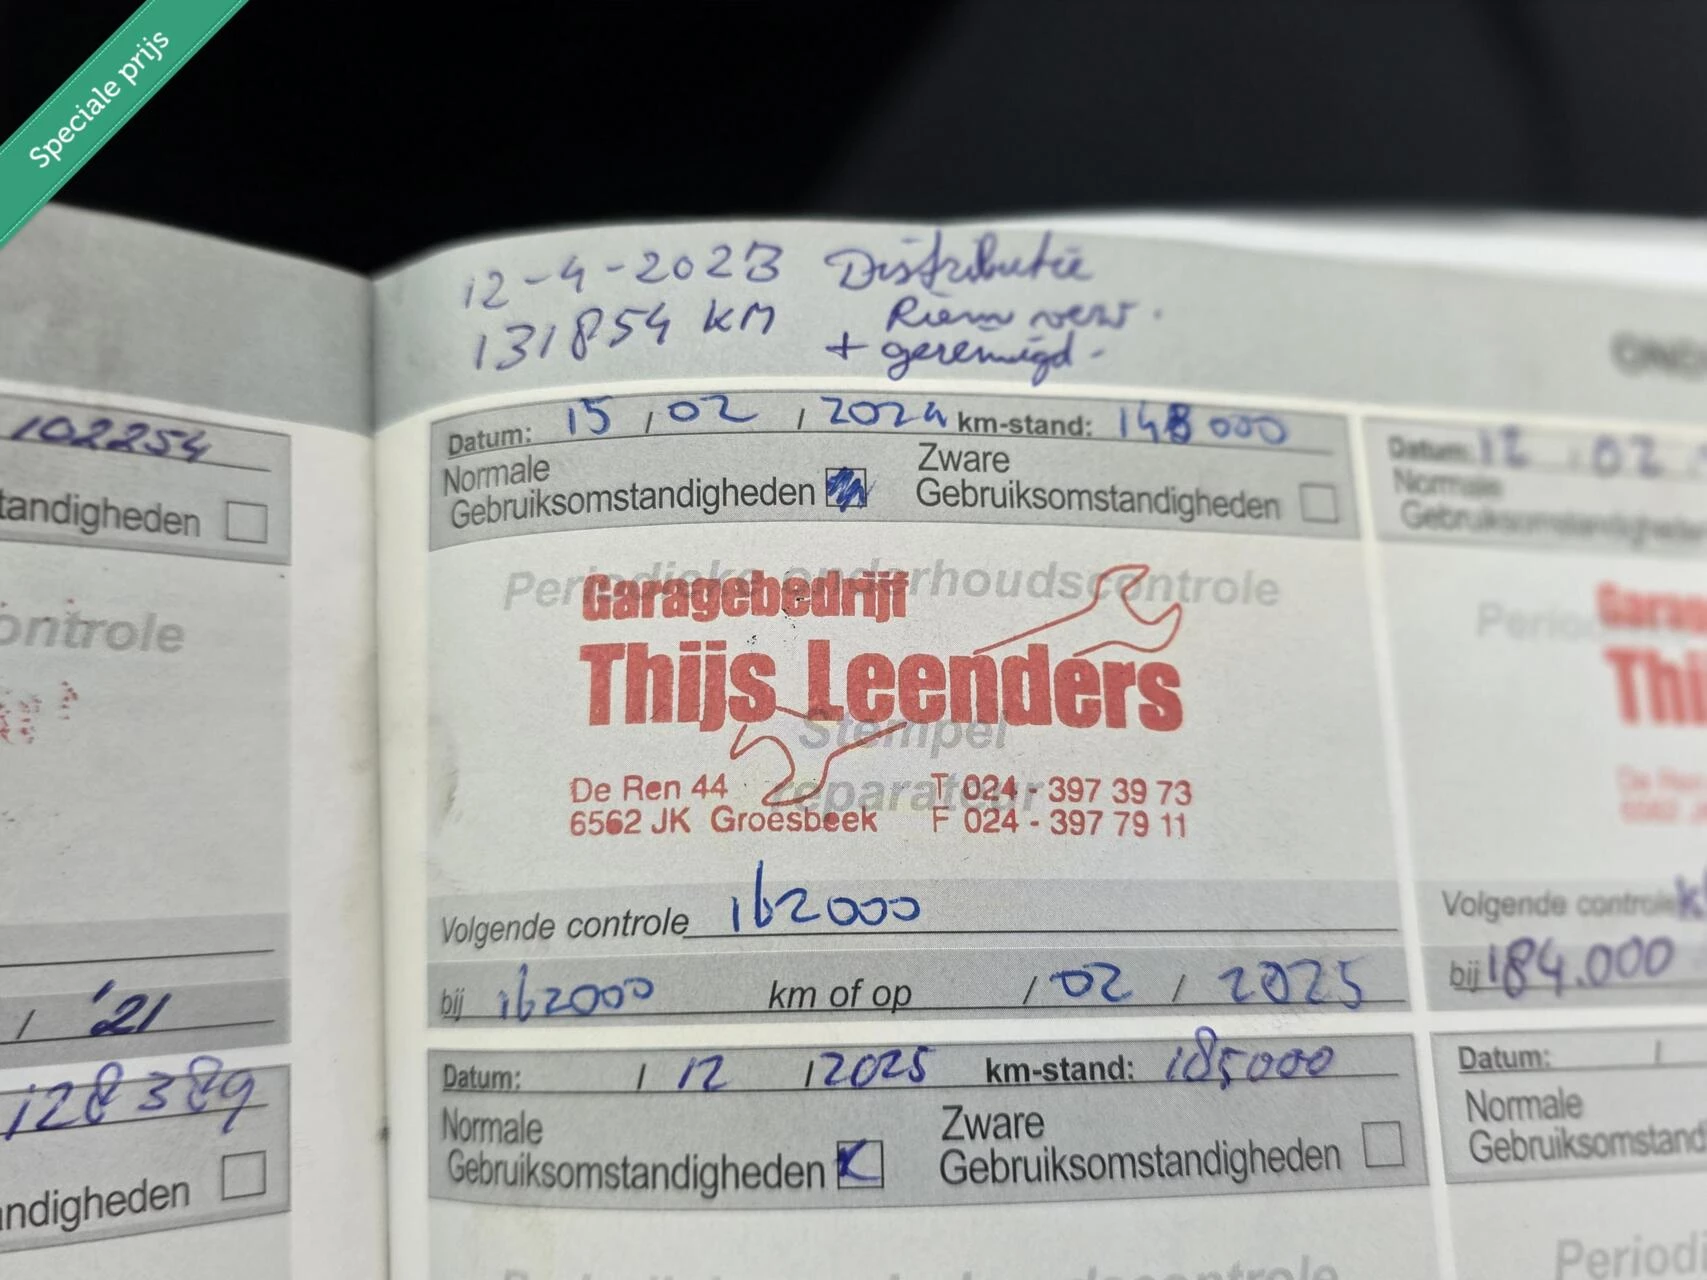 Speciale prijs
12-4-2023 Distributie
131854 KM Riem verv.
+ gereinigd -
102254
tandigheden
ontrole
/ '21
128389
andigheden
Datum: 15 / 02 / 2024 km-stand: 148000
Normale
Gebruiksomstandigheden
Zware
Gebruiksomstandigheden
Periodieke onderhoudscontrole
Garagebedrijf
Thijs Leenders
Stempel
reparateur
De Ren 44 T 024 - 397 39 73
6562 JK Groesbeek F 024 - 397 79 11
Volgende controle 162000
bij 162000 km of op / 02 / 2025
Datum: / 12 / 2025 km-stand: 185000
Normale
Gebruiksomstandigheden
Zware
Gebruiksomstandigheden
Datum: 12 02
Normale
Gebruiksomstandigheden
Perio
Garag
Thi
De Ren
6562 J
Volgende controle
bij 184.000
Datum: /
Normale
Gebruiksomstand
Periodi